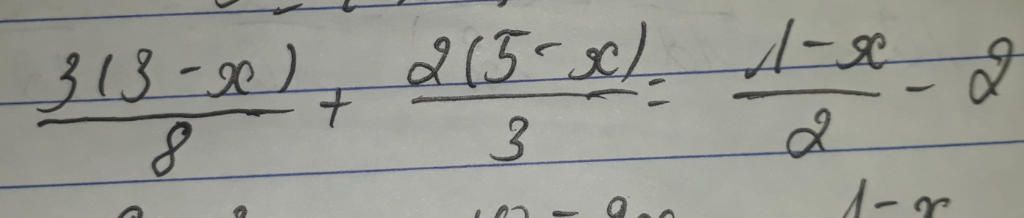 3(3-x)/8 + 2(5-x)/3 = 1-x/2 - 2
1-x